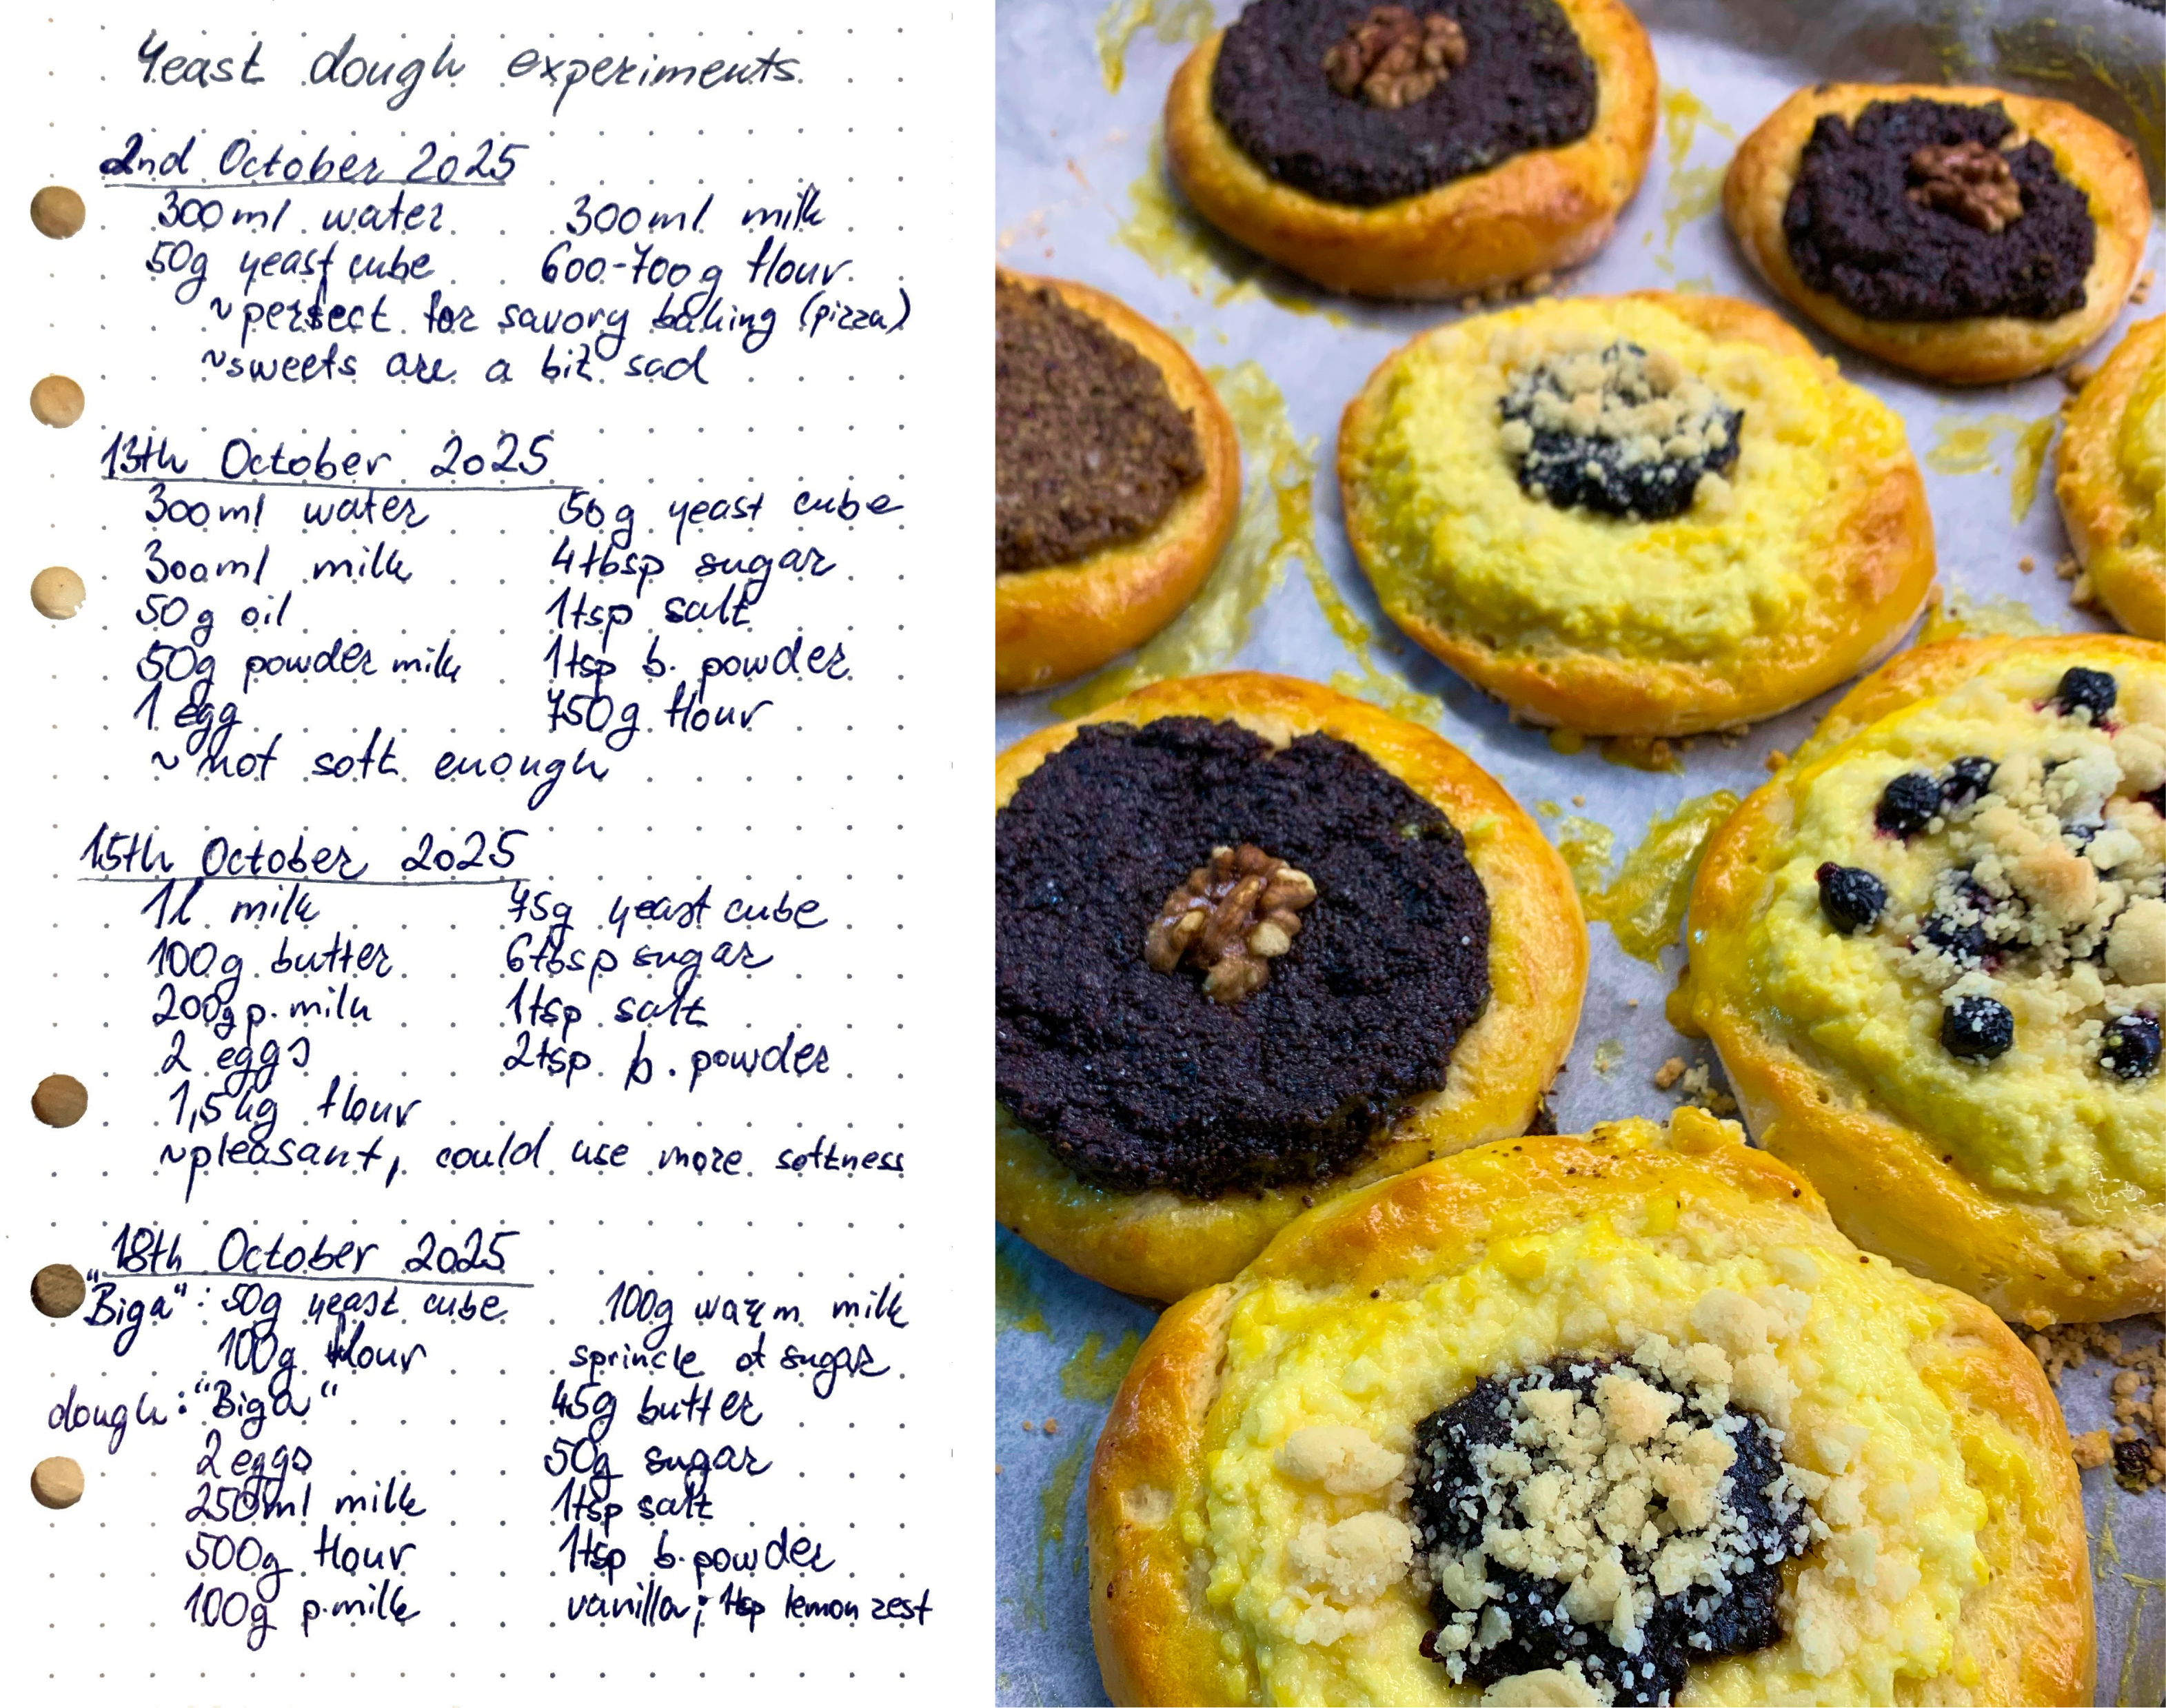 Yeast dough experiments
2nd October 2025
300ml water 300ml milk
50g yeast cube 600-700g flour
~perfect for savory baking (pizza)
~sweets are a bit sad
13th October 2025
300ml water 50g yeast cube
300ml milk 4tbsp sugar
50g oil 1tsp salt
50g powder milk 1tsp b. powder
1 egg 750g flour
~ not soft enough
15th October 2025
1l milk 75g yeast cube
100g butter 6tbsp sugar
200g p. milk 1tsp salt
2 eggs 2tsp b. powder
1,5kg flour
~pleasant, could use more softness
18th October 2025
"Biga": 50g yeast cube 100g warm milk
100g flour sprincle of sugar
dough: "Biga" 45g butter
2 eggs 50g sugar
250ml milk 1tsp salt
500g flour 1tsp b. powder
100g p. milk vanilla; 1tsp lemon zest